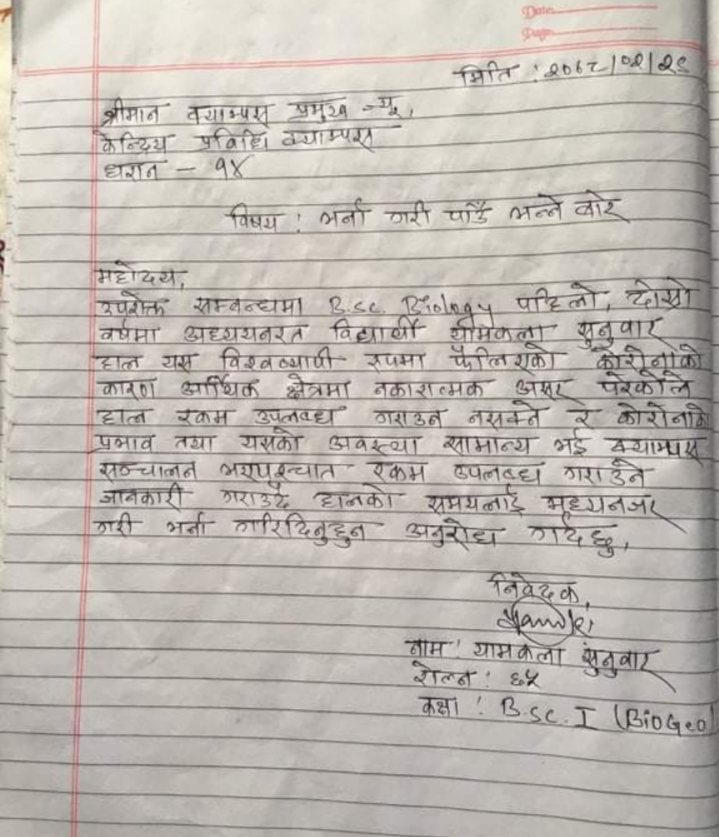 Date
Page
मिति : २०७८/०२/२९
श्रीमान क्याम्पस प्रमुख ज्यू,
केन्द्रिय प्रविधि क्याम्पस
धरान - १४
विषय : भर्ना गरी पाउँ भन्ने बारे
महोदय,
उपरोक्त सम्बन्धमा B.sc. Biology पहिलो, दोस्रो
वर्षमा अध्ययनरत विद्यार्थी यामकला सुनुवार
हाल यस विश्वव्यापी रुपमा फैलिएको कोरोनाको
कारण आर्थिक क्षेत्रमा नकारात्मक असर परेकोले
हाल रकम उपलब्ध गराउन नसक्ने र कोरोनाको
प्रभाव तथा यसको अवस्था सामान्य भई क्याम्पस
सञ्चालन भएपश्चात रकम उपलब्ध गराउने
जानकारी गराउँदै हालको समयलाई मध्यनजर
गरी भर्ना गरिदिनुहुन अनुरोध गर्दछु,
निवेदक,
नाम : यामकला सुनुवार
रोलन : ६५
कक्षा : B.sc. I (BioGeo)